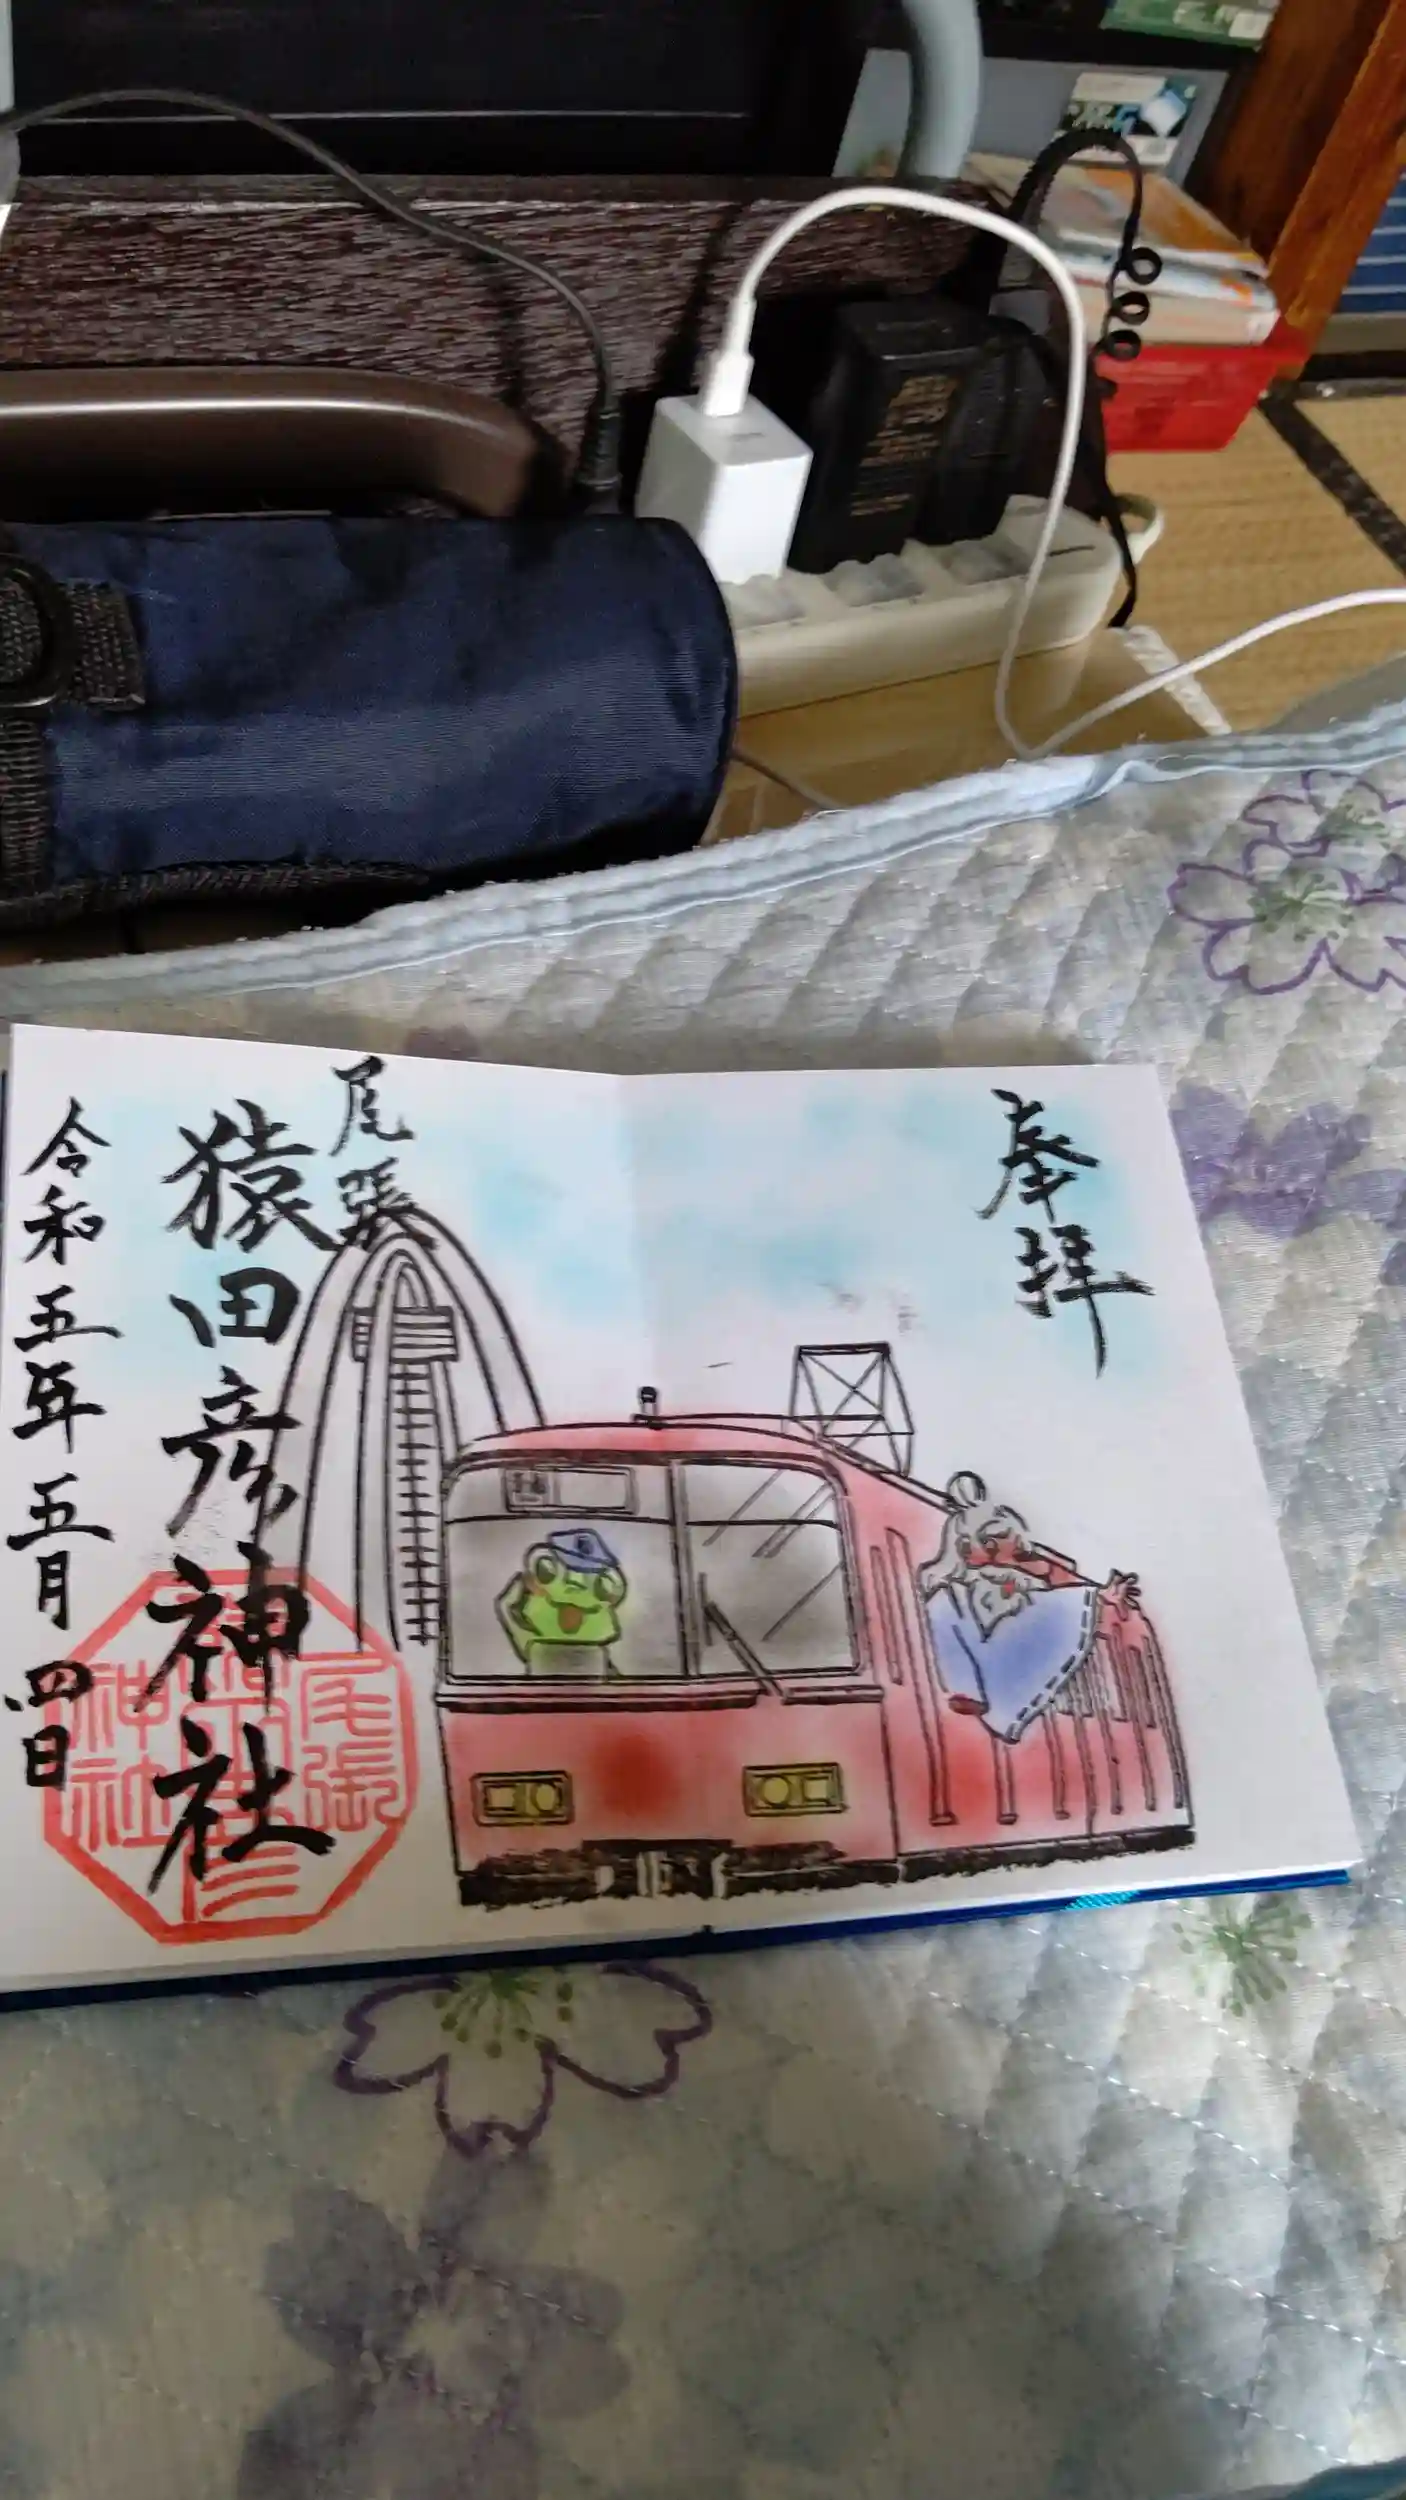 奉拝
尾張
猿田彦神社
令和五年五月四日
尾張
神社